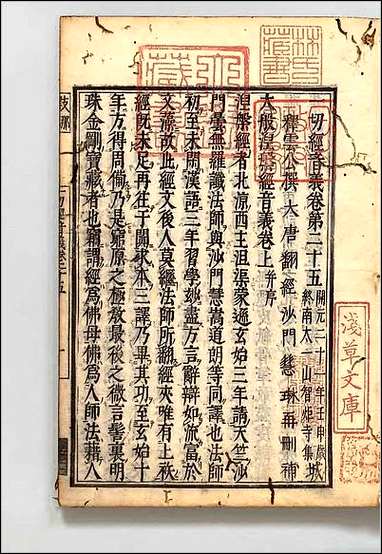 林氏藏書
淺草文庫
一切經音義卷第二十五 開元二十一年壬申歲
終南太一山智炬寺集
釋雲公撰大唐翻經沙門慧琳再刪補
大般涅槃經音義卷上并序
涅槃經者北涼西王沮渠家遜玄始三年請天竺沙
門曇無羅讖法師與沙門慧嵩道朗等同譯也師
初至未閑漢語三年習學妙盡方言辭辯如流富於
文藻故此經文後人莫繼法師所翻經夾唯有上袟
經旣未足再往于闐求本三譯乃畢其功至玄始十
年方得周備乃是窮原之極教最後之微言髻裏明
珠金剛寶藏者也竊謂經爲佛母佛爲人師法藉人